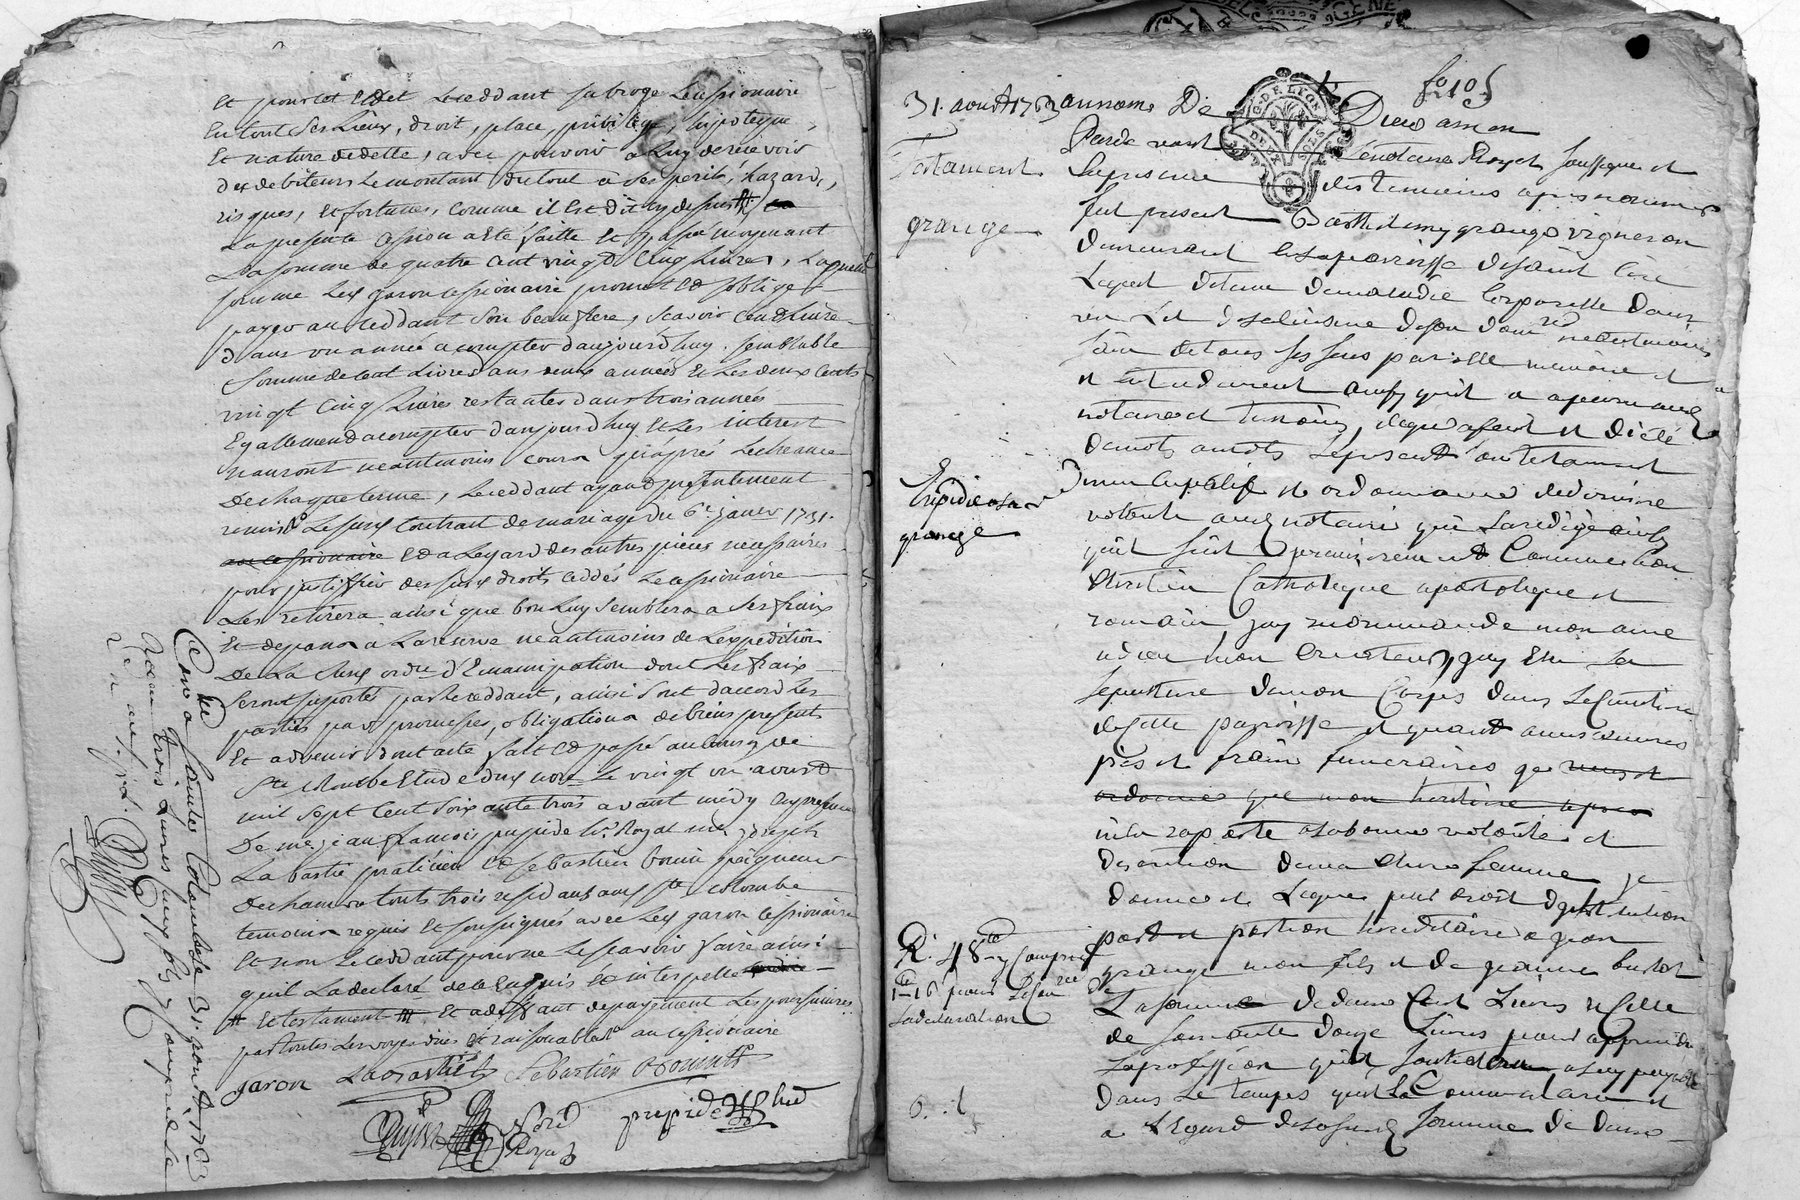 Et pour cet Effet Le ceddant subroge Le cessionaire
En tout ses Lieux, droit, place, privilege, hypoteque,
Et nature de dette, avec pouvoir a Luy de recevoir
des debiteurs Le montant du tout a ses perils, hazards,
risques, et fortunes, comme il est dit cy dessus
La presente Cession a Eté faitte Et passé moyenant
La somme de quatre cent vingt Cinq Livres, Laquelle
somme Led garon cessionaire promet Et s'oblige
payer au ceddant son beaufrere, scavoir Cent Livres
dans un année a compter d'aujourd'huy. semblable
somme de Cent Livres dans deux années Et Les deux Cents
vingt Cinq Livres restantes dans trois années
Egallement a compter d'aujourd'huy Et Les interest
n'auront neantmoins cours qu'aprés L'echeance
De chaque terme, Le ceddant ayant presentement
remis Le susd Contrat de mariage du 6e janvier 1731.
au cessionaire Et a L'egard des autres pieces necessaires
pour justiffier des susd droits ceddés Le cessionaire
Les retirera ainsi que bon Luy semblera a ses fraix
Et depans a La reserve neantmoins de L'expedition
De La susd ordce d'Emancipation dont Les fraix
seront suportés par Le ceddant, ainsi sont d'accord Les
parties par promesses, obligation de biens presents
Et advenir dont acte fait Et passé au bourg de
Ste Colombe Etude dud nore Le vingt un aoust
mil sept Cent soixante trois avant midy En presence
De me jean francois pupide Sr Royal me joseph
La bastie praticien Et sebastien bonin peigneur
De chanvre touts trois residans aud Ste Colombe
temoins requis Et sousignés avec Led garon Cessionaire
Et non Le ceddant pour ne Le scavoir faire ainsi
qu'il La declaré de ce Enquis Et interpellé
Et testament Et a deffaut de payement Les poursuivra
par toutes Les voyes dues Et raisonables au cessionaire
garon Labastie Sebastien Bonin
Dujast Nore Royal pupide
Conlle a Sainte Colombe 31. aoust 1763
Recu trois Livres cinq sols y compris le
31. aoust 1763
Testament
grange
Expedié a Sr
grange
fo 105
G. DE LYON
DEUX SOLS
au nom De Dieu amen
Pardevant Le notaire Royal soussigné et
En presence des temoins apres nommés
fut present Barthelemy grange vigneron
demeurant En La parroisse de saint Cire
Lequel detenu de maladie Corporelle dans
un Lit de sa cuisine de son domle neantmoins
sain de tous ses sens parolle memoire et
et entendement ainsy qu'il a aparu aud
notaire et temoins, Lequel a fait et dicté
de mots a mots Le present son testament
nuncupatif et ordonnance de derniere
volonté aud notaire qui La redigé ainsy
qu'il suit premierement Comme bon
Chretien Catholique apostolique et
romain j'ay recommandé mon ame
a dieu mon Createur, j'ay Elu La
sepulture de mon Corps dans Le Cimetiere
de cette parroisse et quant a mes oeuvres
pies et frais funeraires je veux et
ordonne que mon heritiere apres
m'En raporte a La bonne volonté et
discretion de ma chere femme je
donne et Legue par droit d'institution
part et portion hereditaire a jean
grange mon fils et de jeanne
La somme de deux Cent Livres et Celle
de soixante douze Livres pour apprendre
La proffession qu'il souhaitera a Luy payable
dans Le temps qu'il La Commencera et
a L'Egard de La susd somme de deux
R. 48 y Compris
1-16 pour Le
La declaration